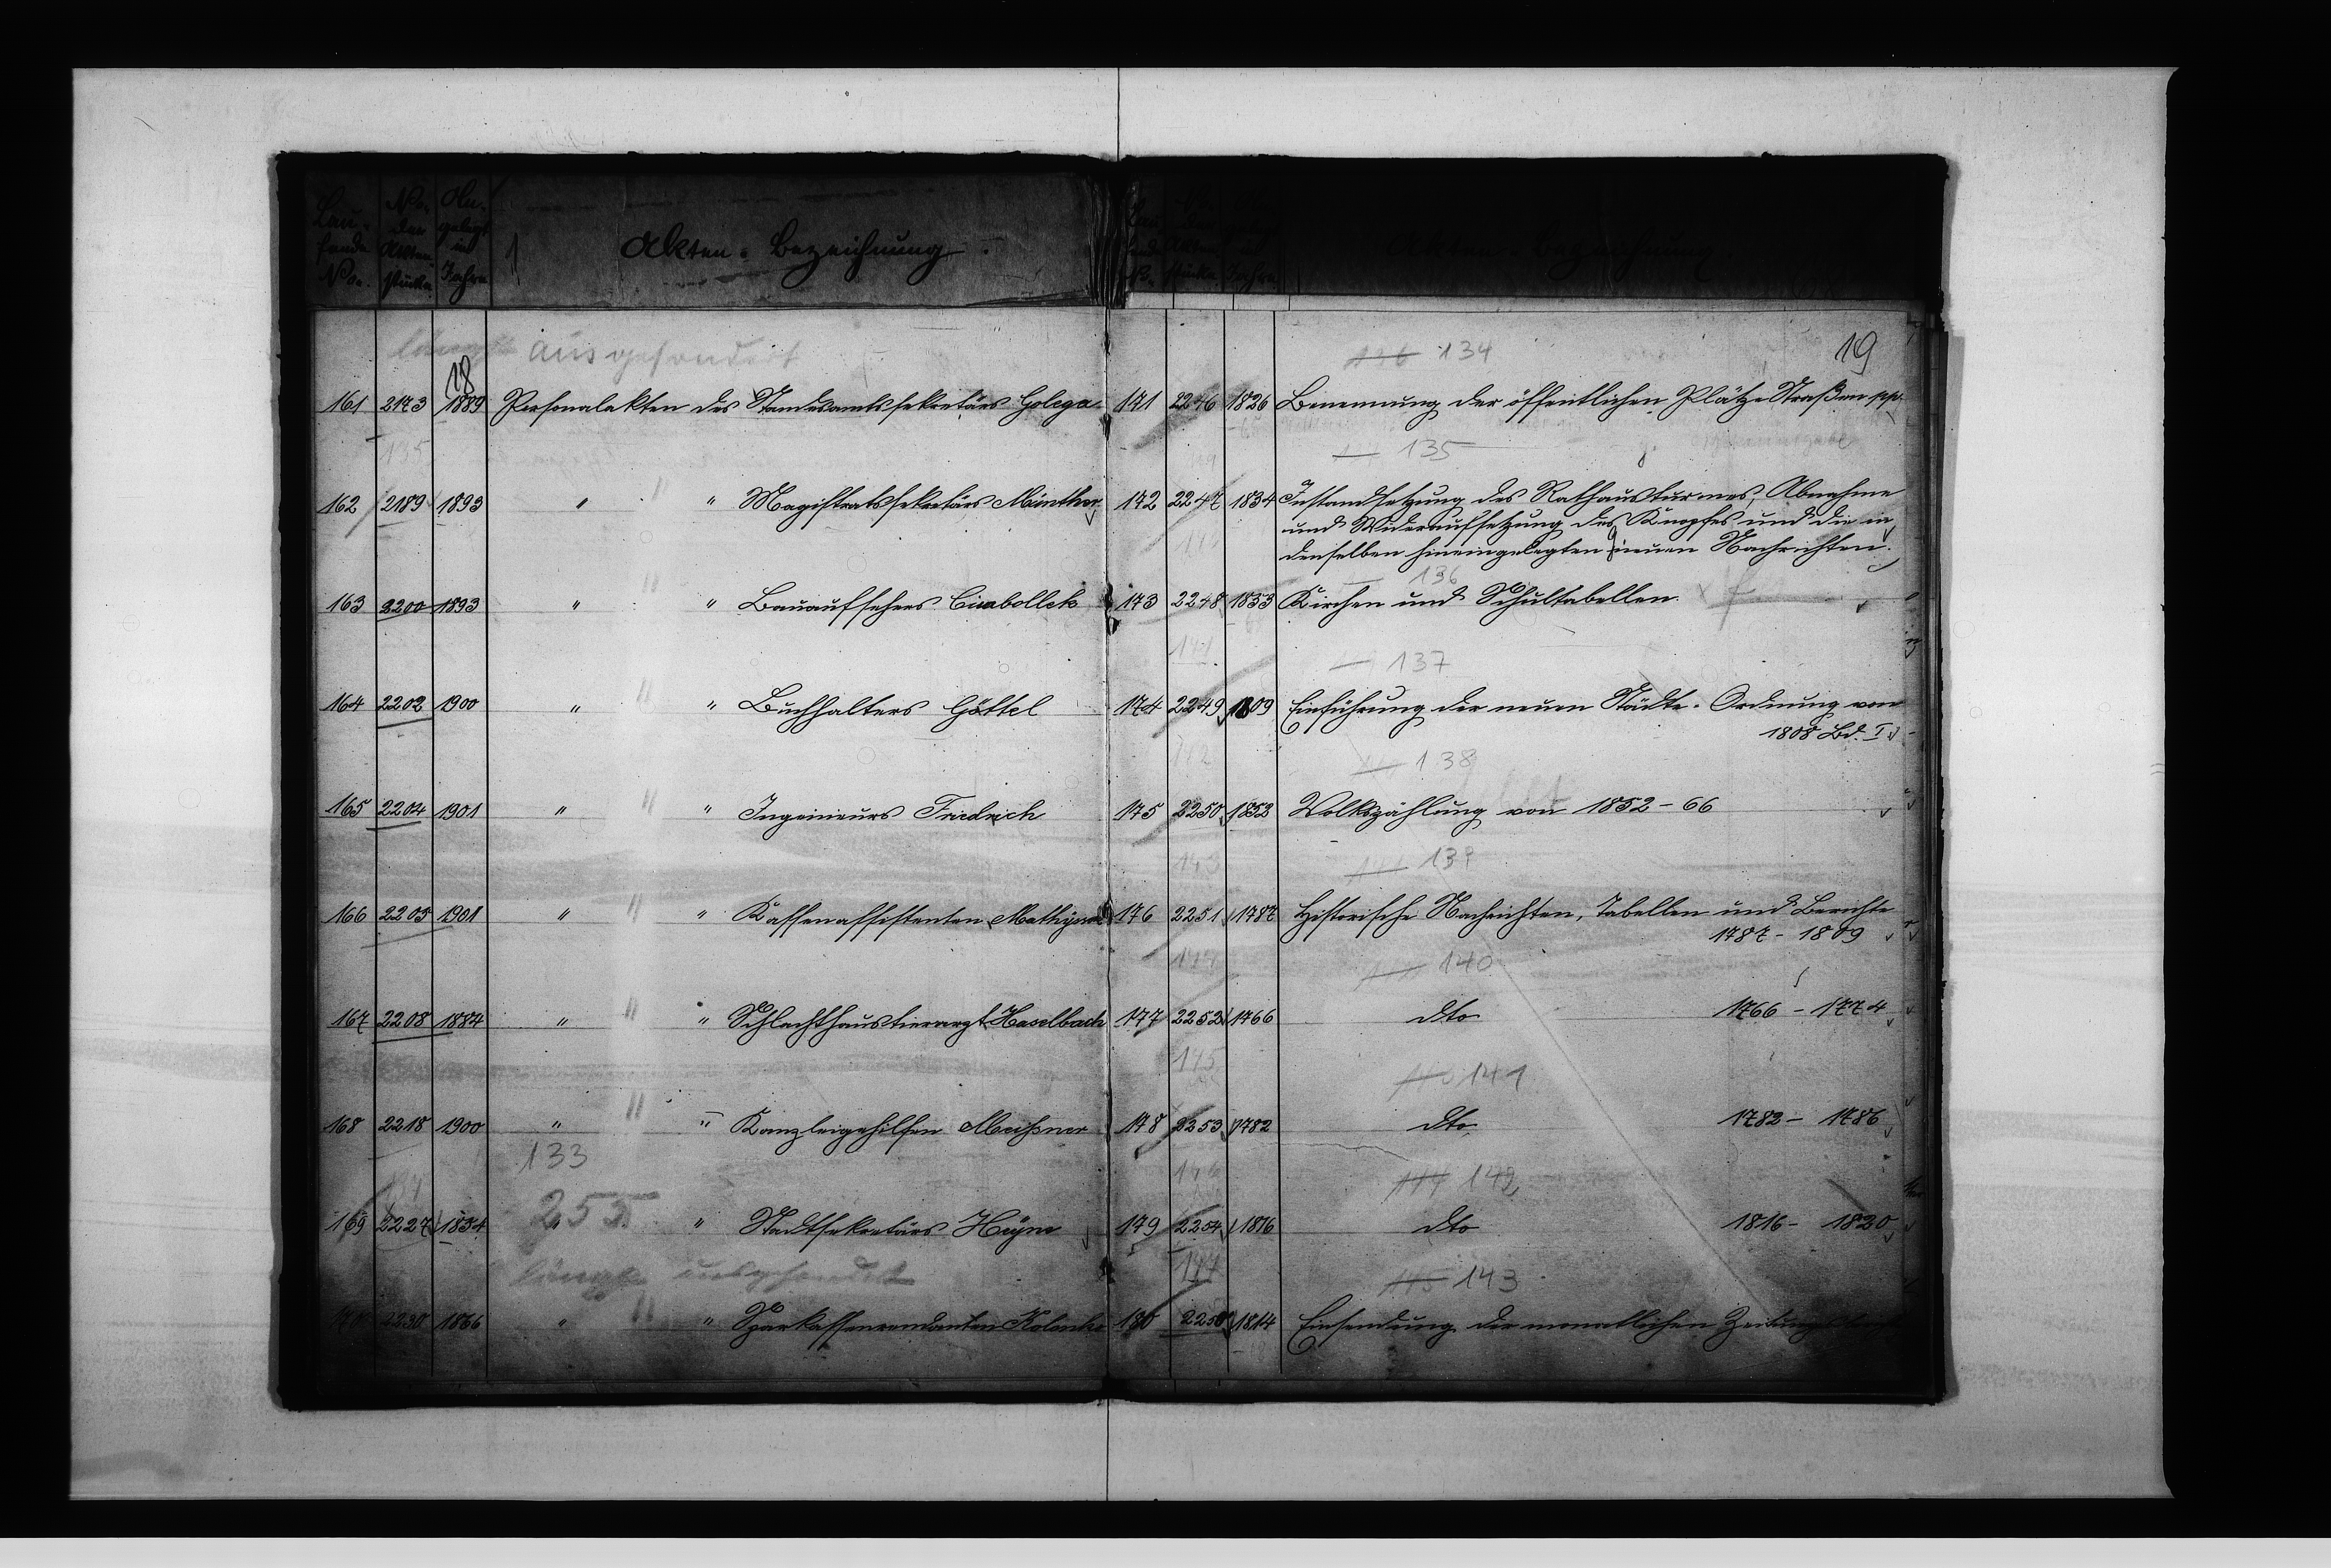 Lau-
fende
No.
No.
der
Akten-
stücke
An-
gelegt
im
Jahre
Akten-Bezeichnung.
18
ausgesondert
161 2173 1889 Personalakten des Standesamtssekretärs Golega
135
162 2189 1893 " " " Magistratssekretärs Münther
163 2200 1893 " " " Bauaufsehers Cimbollek
164 2202 1900 " " " Buchhalters Göttel
165 2204 1901 " " " Ingenieurs Friedrich
166 2205 1901 " " " Kassenassistenten
167 2208 1884 " " " Schlachthaustierarzt Haselbach
168 2218 1900 " " " Kanzleigehilfen Meißner
133
169 2227 1834 " 255 " Stadtsekretärs Heyne
längst ausgesondert
170 2230 1866 " " " Sparkassenrendanten
Akten-Bezeichnung
19
134
171 2246 1826 Benennung der öffentlichen Plätze Straßen pp.
135
172 2247 1834 Instandsetzung des Rathausturmes, Abnahme
und Wideraufsetzung des Knopfes und die in
denselben hineingelegten neuen Nachrichten.
136
173 2248 1853 Kirchen und Schultabellen
141
137
174 2249 1809 Einführung der neuen Städte-Ordnung von
1808 Bd. I
138
175 2250 1852 Volkszählung von 1852-66
143
139
176 2251 1787 Historische Nachrichten, Tabellen und Berichte
1787-1809
144
140
177 2252 1766 dto 1766-1774
145
141
178 2253 1782 dto 1782-1786
146
142
179 2254 1816 dto 1816-1820
147
143
180 2256 1814 Einsendung der monatlichen